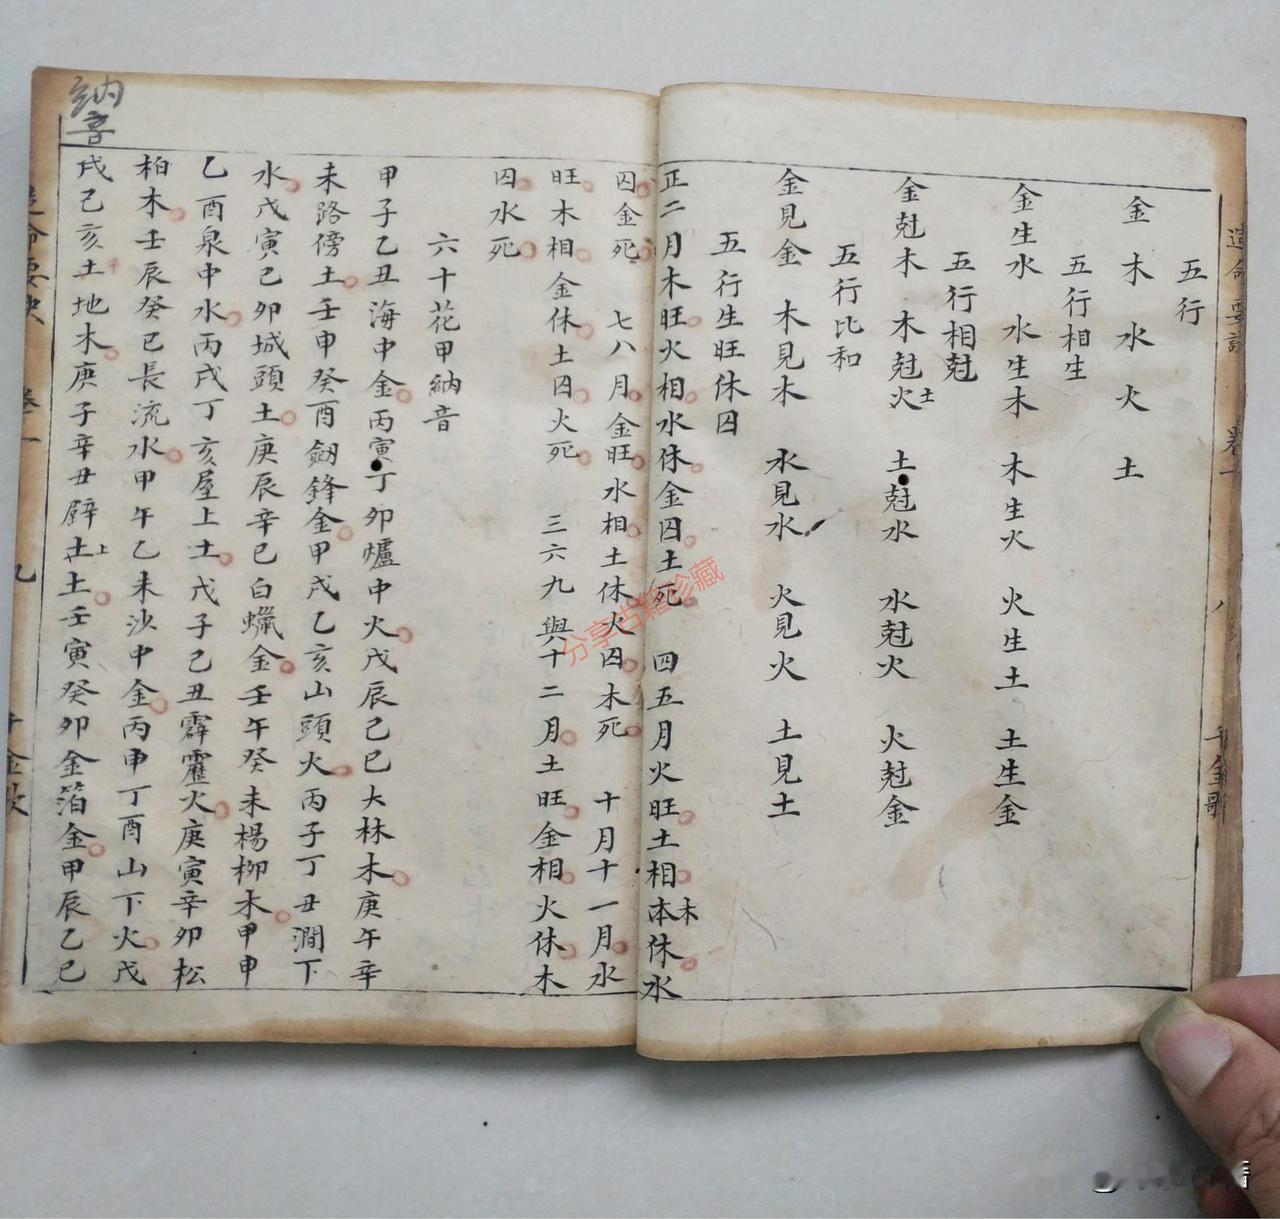 造命要訣 卷一 八
五行
金 木 水 火 土
五行相生
金生水 水生木 木生火 火生土 土生金
五行相尅
金尅木 木尅火土 土尅水 水尅火 火尅金
五行比和
金見金 木見木 水見水 火見火 土見土
五行生旺休囚
正二月木旺火相水休金囚土死 四五月火旺土相本木休水
囚金死 七八月金旺水相土休火囚木死 十月十一月水
旺木相金休土囚火死 三六九與十二月土旺金相火休木
囚水死
六十花甲納音
甲子乙丑海中金丙寅丁卯爐中火戊辰己巳大林木庚午辛
未路傍土壬申癸酉劒鋒金甲戌乙亥山頭火丙子丁丑澗下
水戊寅己卯城頭土庚辰辛巳白蠟金壬午癸未楊柳木甲申
乙酉泉中水丙戌丁亥屋上土戊子己丑霹靂火庚寅辛卯松
柏木壬辰癸巳長流水甲午乙未沙中金丙申丁酉山下火戊
戌己亥土地木庚子辛丑壁土上土壬寅癸卯金箔金甲辰乙巳
納音
造命要訣 卷一 九
分享古籍珍藏